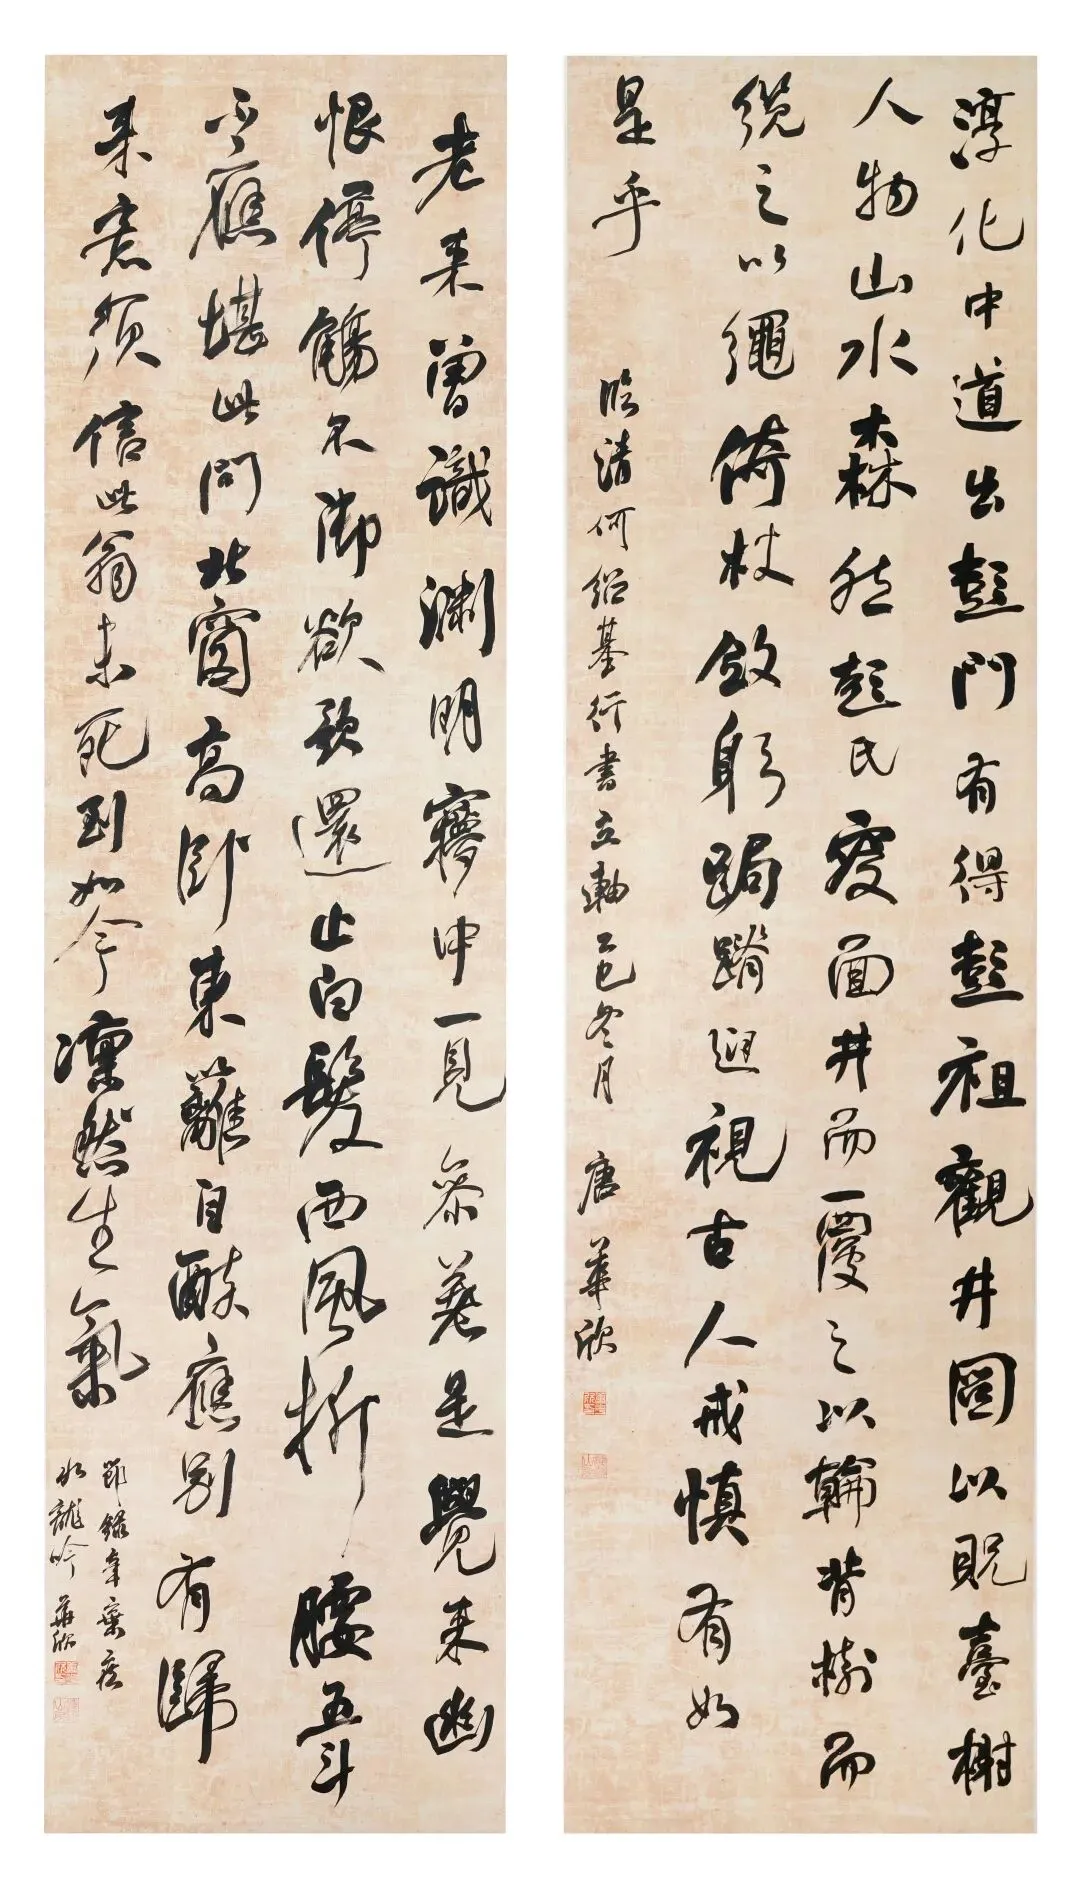 淳化中道出彭門有得彭祖觀井圖以貺臺榭
人物山水森然彭氏面井而覆之以輪背樹而
纜之以繩倚杖斂躬跼蹐迴視古人戒慎有如
是乎
臨清何紹基行書立軸乙巳冬月 唐華欣
老來曾識淵明夢中一見參差是覺來幽
恨停觴不御欲歌還止白髮西風折腰五斗
不應堪此問北窗高臥東籬自醉應別有歸
來意須信此翁未死到如今凜然生氣
節錄辛棄疾
水龍吟 華欣